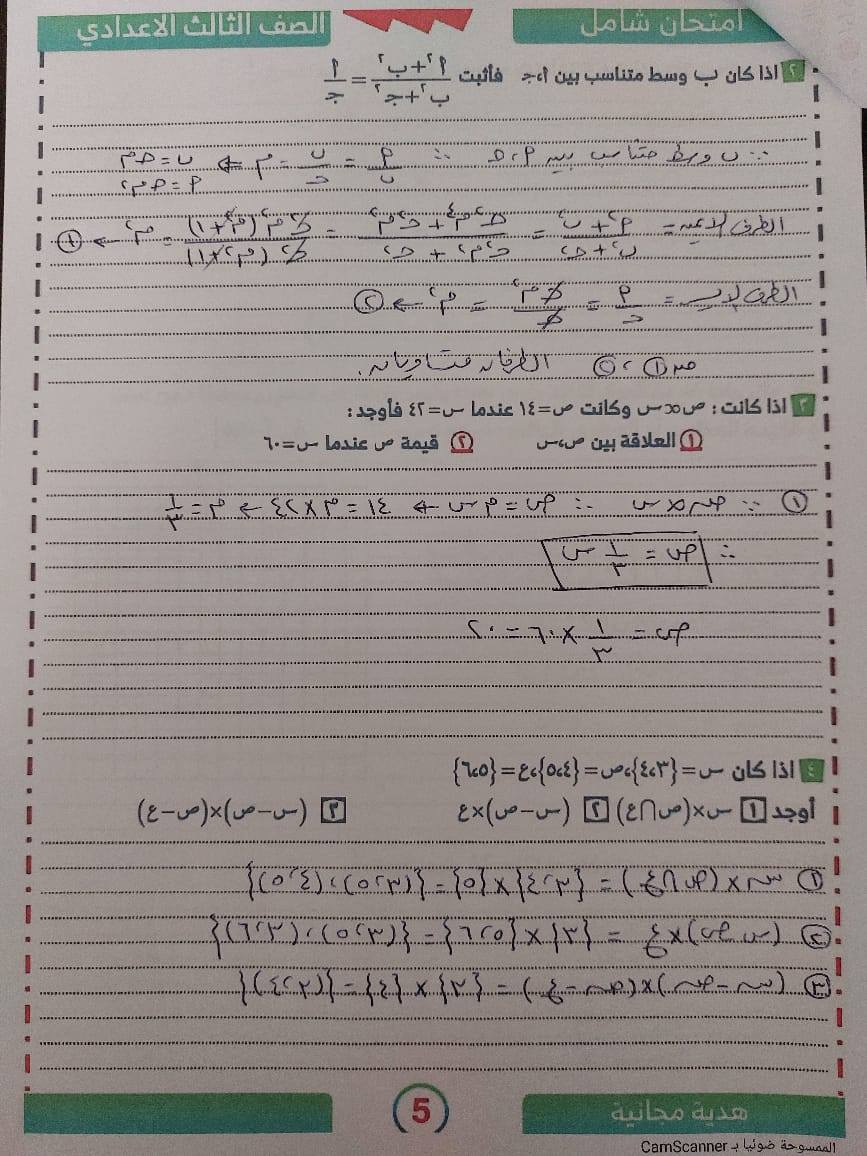 امتحان شامل
الصف الثالث الاعدادي
٢ اذا كان ب وسط متناسب بين أ،ج فأثبت (أ٢+ب٢)/(ب٢+ج٢) = أ/ج
∵ ب وسط متناسب بين أ، ح ∴ أ/ب = ب/ح = م ⇐ ب = حم
أ = حم٢
الطرف الايمن = (أ٢ + ب٢)/(ب٢ + ح٢) = (ح٢م٤ + ح٢م٢)/(ح٢م٢ + ح٢) = ح٢م٢(م٢+١)/ح٢(م٢+١) = م٢ ← ①
الطرف الايسر = أ/ح = حم٢/ح = م٢ ← ②
من ① ، ② الطرفان متساويان.
٣ اذا كانت : ص∝س وكانت ص=١٤ عندما س=٤٢ فأوجد :
① العلاقة بين ص،س ② قيمة ص عندما س=٦٠
① ∵ ص ∝ س ∴ ص = م س ← ١٤ = م × ٤٢ ← م = ١/٣
∴ ص = ١/٣ س
ص = ١/٣ × ٦٠ = ٢٠
٤ اذا كان س={٣،٤}،ص={٤،٥}،ع={٥،٦}
أوجد ١ س×(ص∩ع) ٢ (س-ص)×ع ٣ (س-ص)×(ص-ع)
① س × (ص ∩ ع) = {٣،٤} × {٥} = {(٣،٥)، (٤،٥)}
② (س ص) × ع = {٣} × {٥،٦} = {(٣،٥)، (٣،٦)}
③ (س - ص) × (ص - ع) = {٣} × {٤} = {(٣،٤)}
5
هدية مجانية
الممسوحة ضوئيا بـ CamScanner